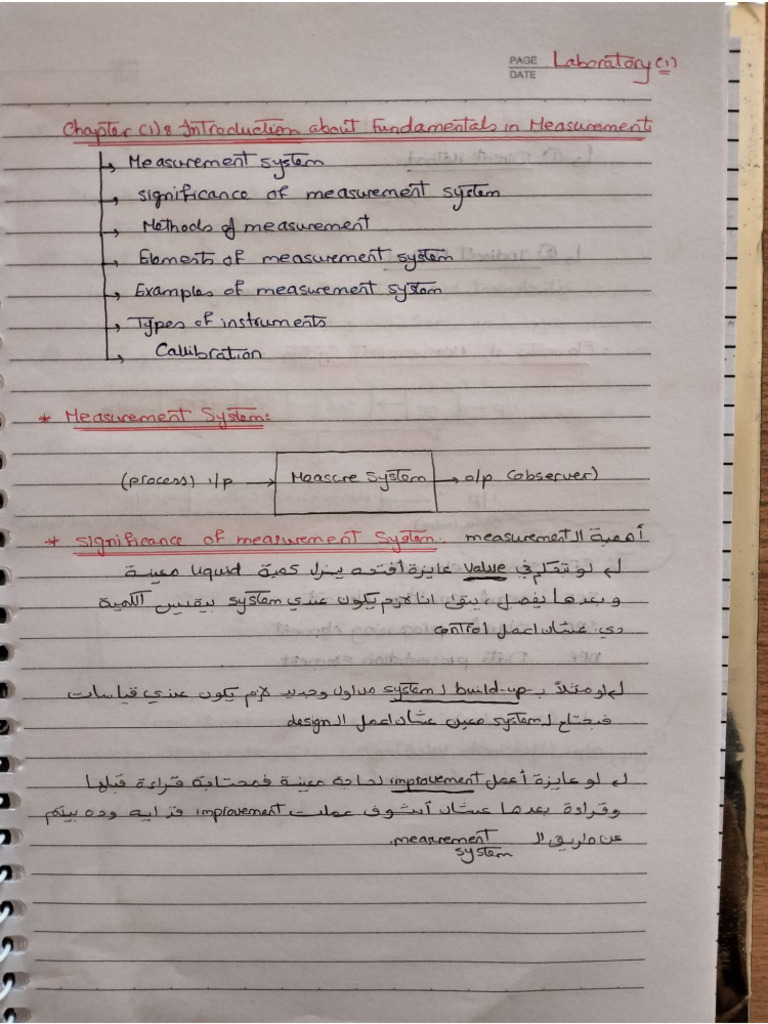 PAGE Laboratory (1)
DATE
Chapter (1): Introduction about Fundamentals in Measurement
Measurement system
significance of measurement system
Methods of measurement
Elements of measurement system
Examples of measurement system
Types of instruments
Callibration
* Measurement System:
(process) i/p → Measure System → o/p (observer)
* significance of measurement System. أهمية الـ measurement
لو بتكلم في value عايزة أفتحه ينزل كمية liquid معينة
و بعدها يفصل ، يبقى انا لازم يكون عندي system بيقيس الكمية
دي عشان اعمل control
لو مثلاً بـ build-up لـ system جديد لازم يكون عندي قياسات
فبحتاج لـ system معين عشان اعمل الـ design
لو عايزة أعمل improvement لحاجة معينة فمحتاجة قراءة قبلها
وقراءة بعدها عشان أشوف عملت improvement قد ايه وده بيتم
عن طريق الـ measurement
system